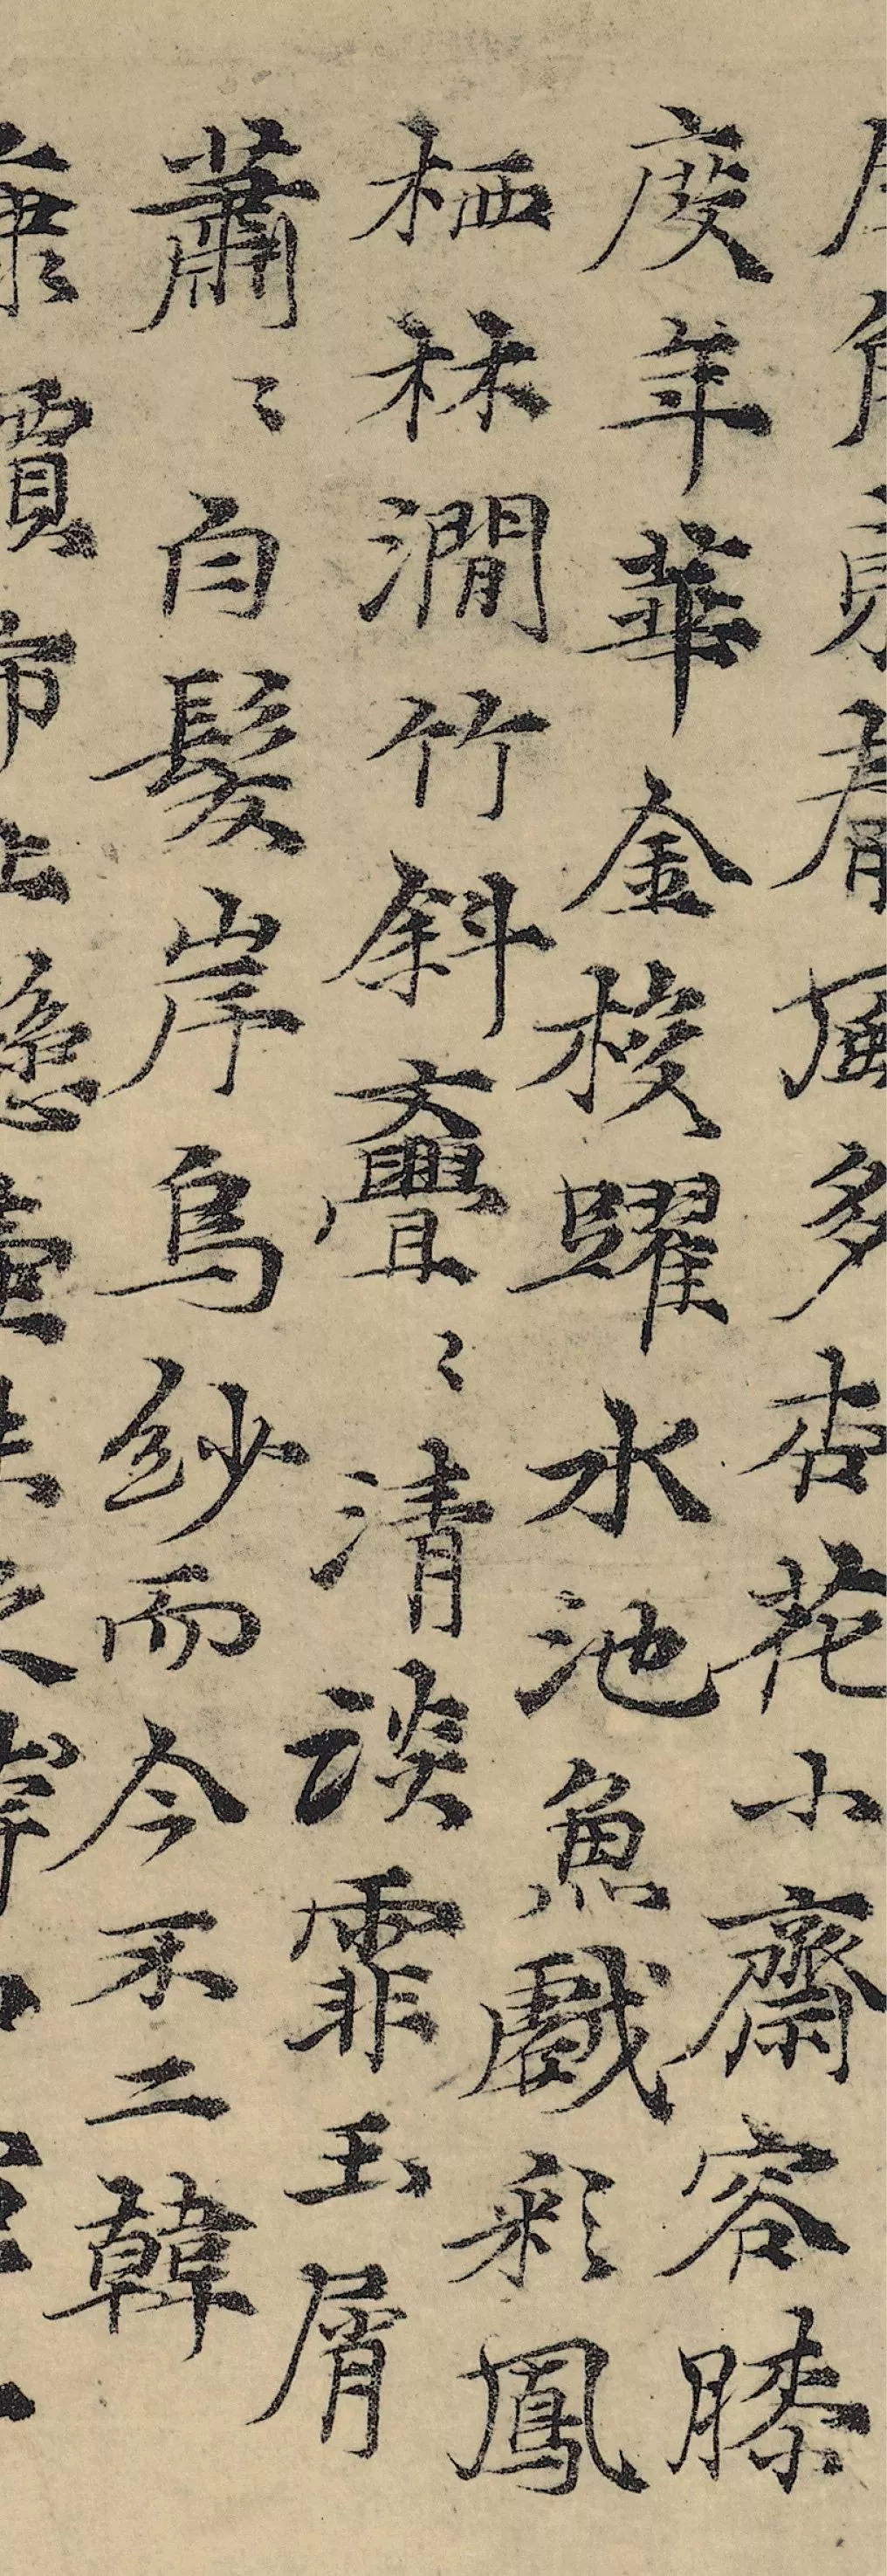 角 風多杏花小齋容膝
度年華金梭躍水池魚戲彩鳳
栖林澗竹斜亹〻清談霏玉屑
蕭〻白髮岸烏紗而今不二韓
康價市上 壺